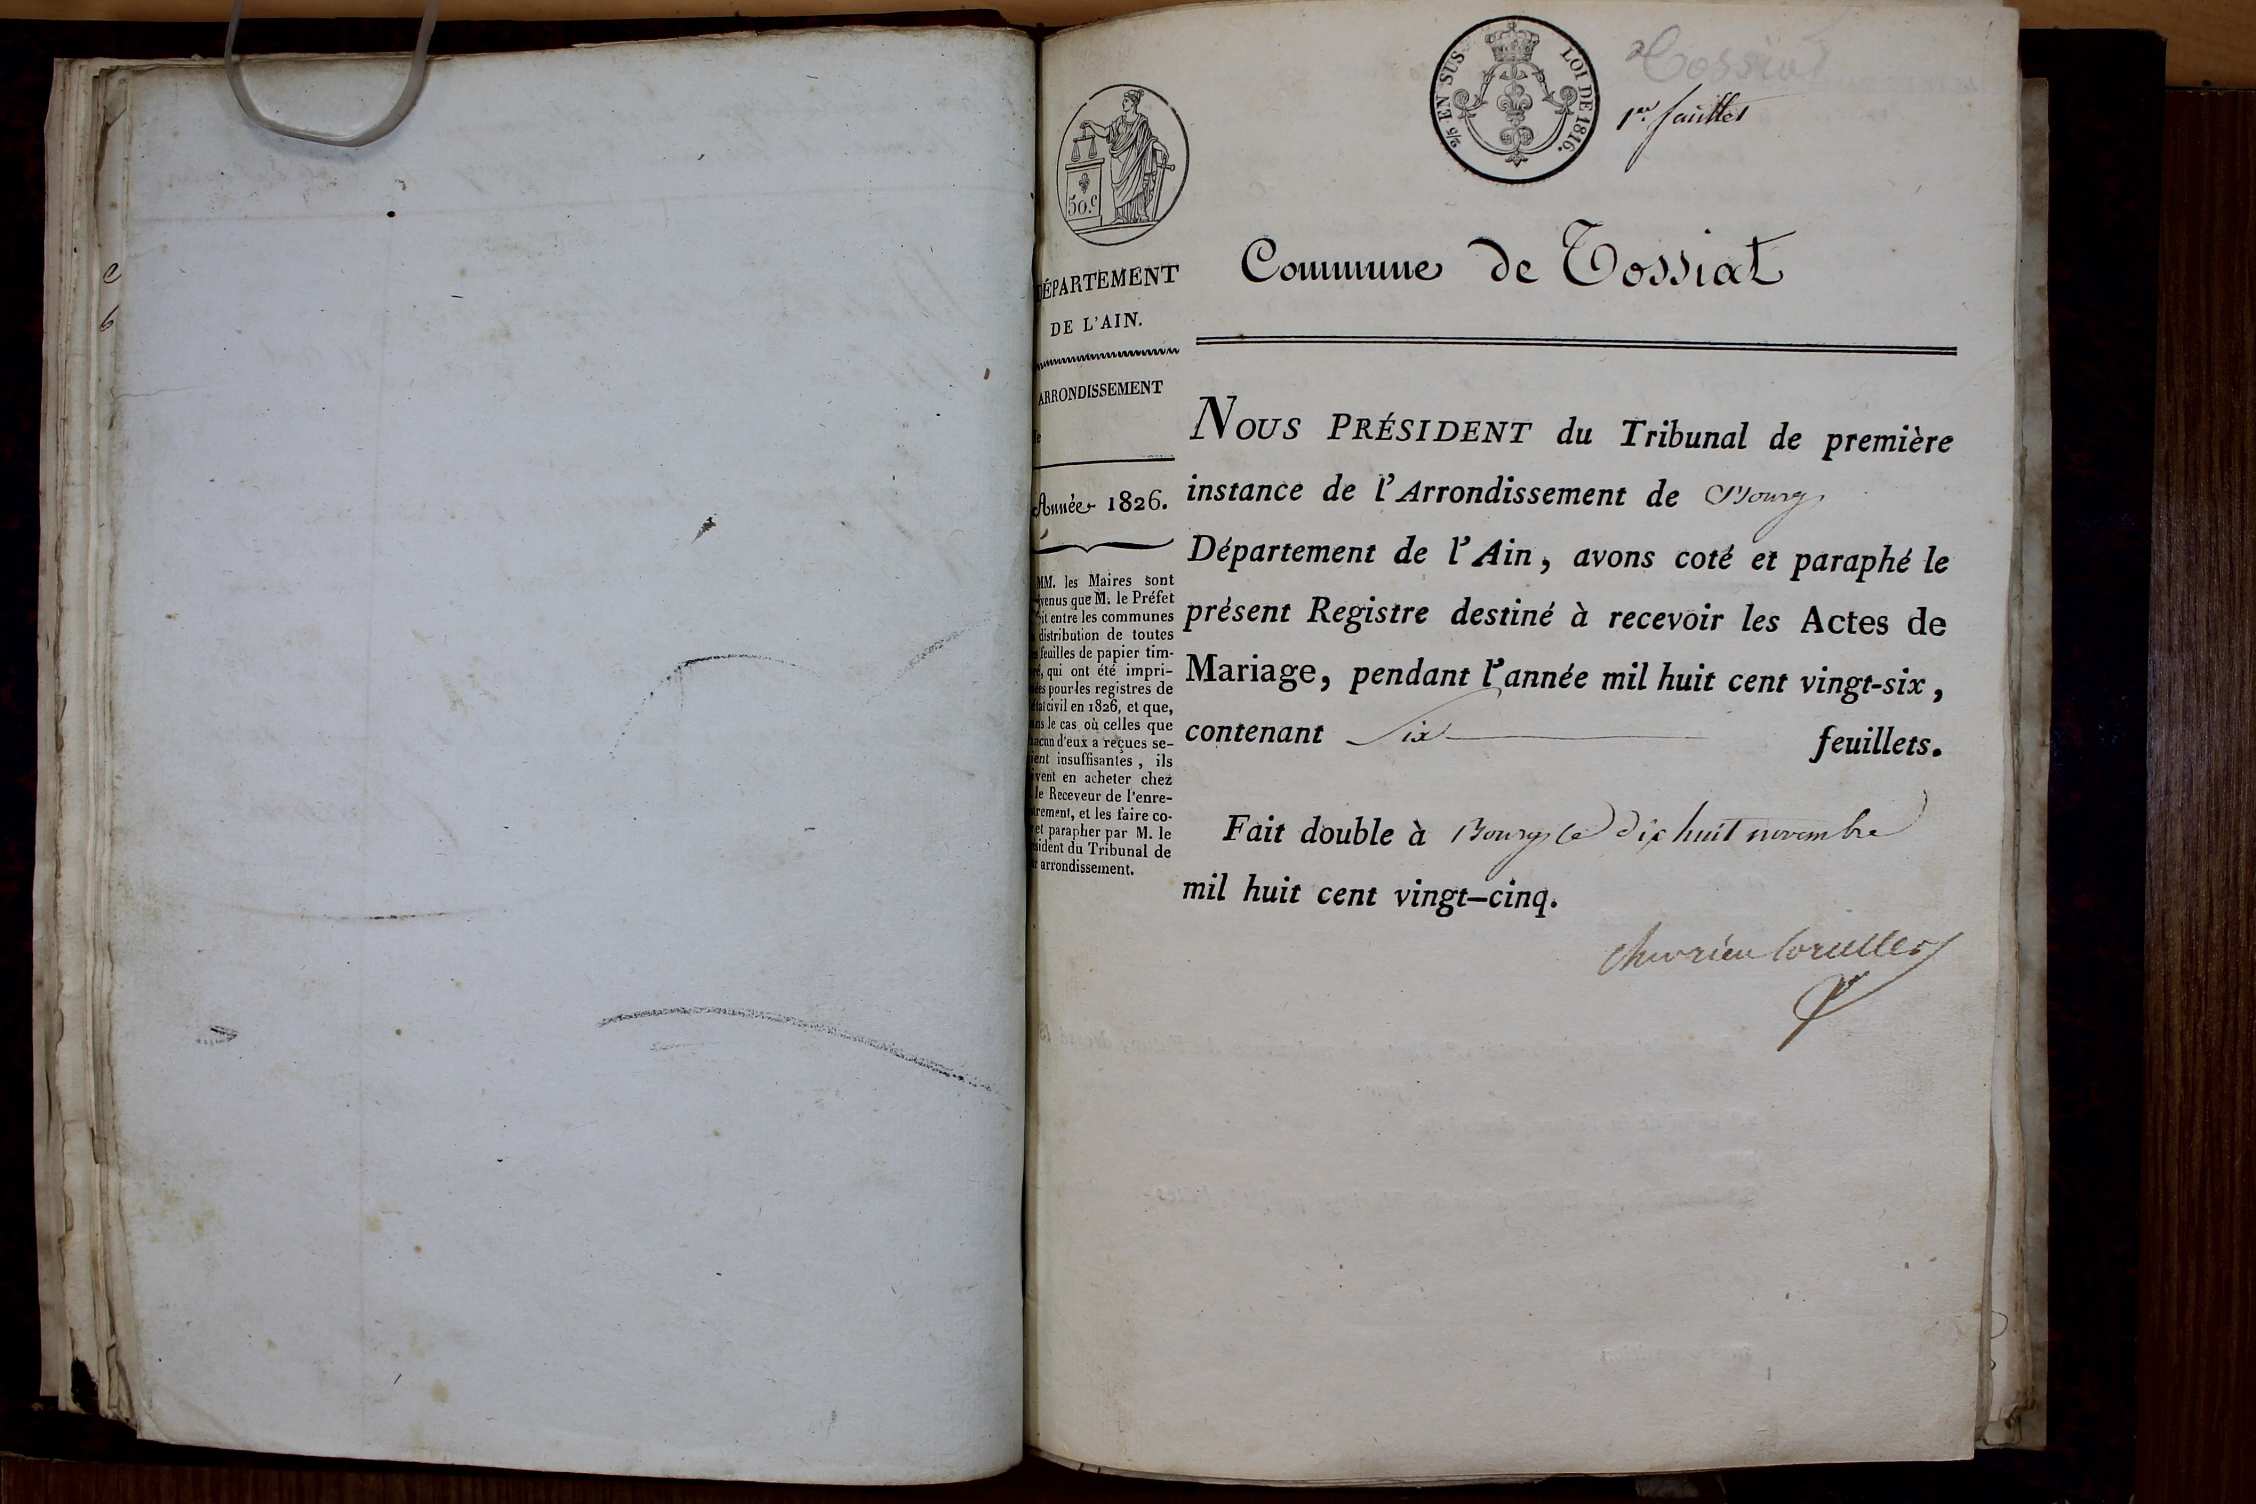 Tossiat
1er feuillet
2/5 EN SUS
LOI DE 1816.
50.c
DÉPARTEMENT
DE L'AIN.
ARRONDISSEMENT
Année 1826.
MM. les Maires sont
venus que M. le Préfet
it entre les communes
distribution de toutes
feuilles de papier tim-
é, qui ont été impri-
ées pour les registres de
état civil en 1826, et que,
ns le cas où celles que
acun d'eux a reçues se-
ient insuffisantes, ils
ivent en acheter chez
le Receveur de l'enre-
trement, et les faire co-
et parapher par M. le
ésident du Tribunal de
r arrondissement.
Commune de Tossiat
NOUS PRÉSIDENT du Tribunal de première
instance de l'Arrondissement de Bourg
Département de l'Ain, avons coté et paraphé le
présent Registre destiné à recevoir les Actes de
Mariage, pendant l'année mil huit cent vingt-six,
contenant Six feuillets.
Fait double à Bourg le dix huit novembre
mil huit cent vingt-cinq.